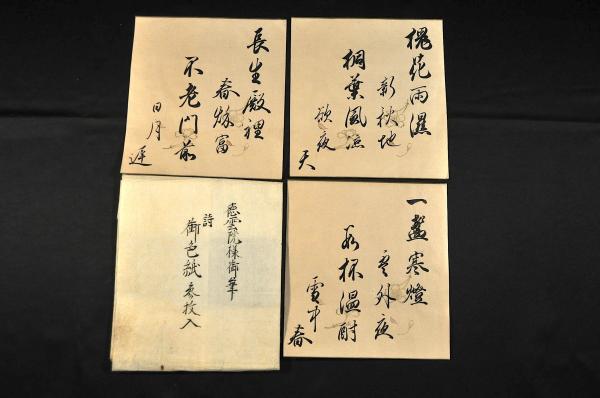 槐花雨濕
新秋地
桐葉風凉
欲夜
天
長生殿裡
春秌富
不老門前
日月
遅
一盞寒燈
雲外夜
数杯温酎
雪中
春
雲院様御筆
詩
御色紙参枚入